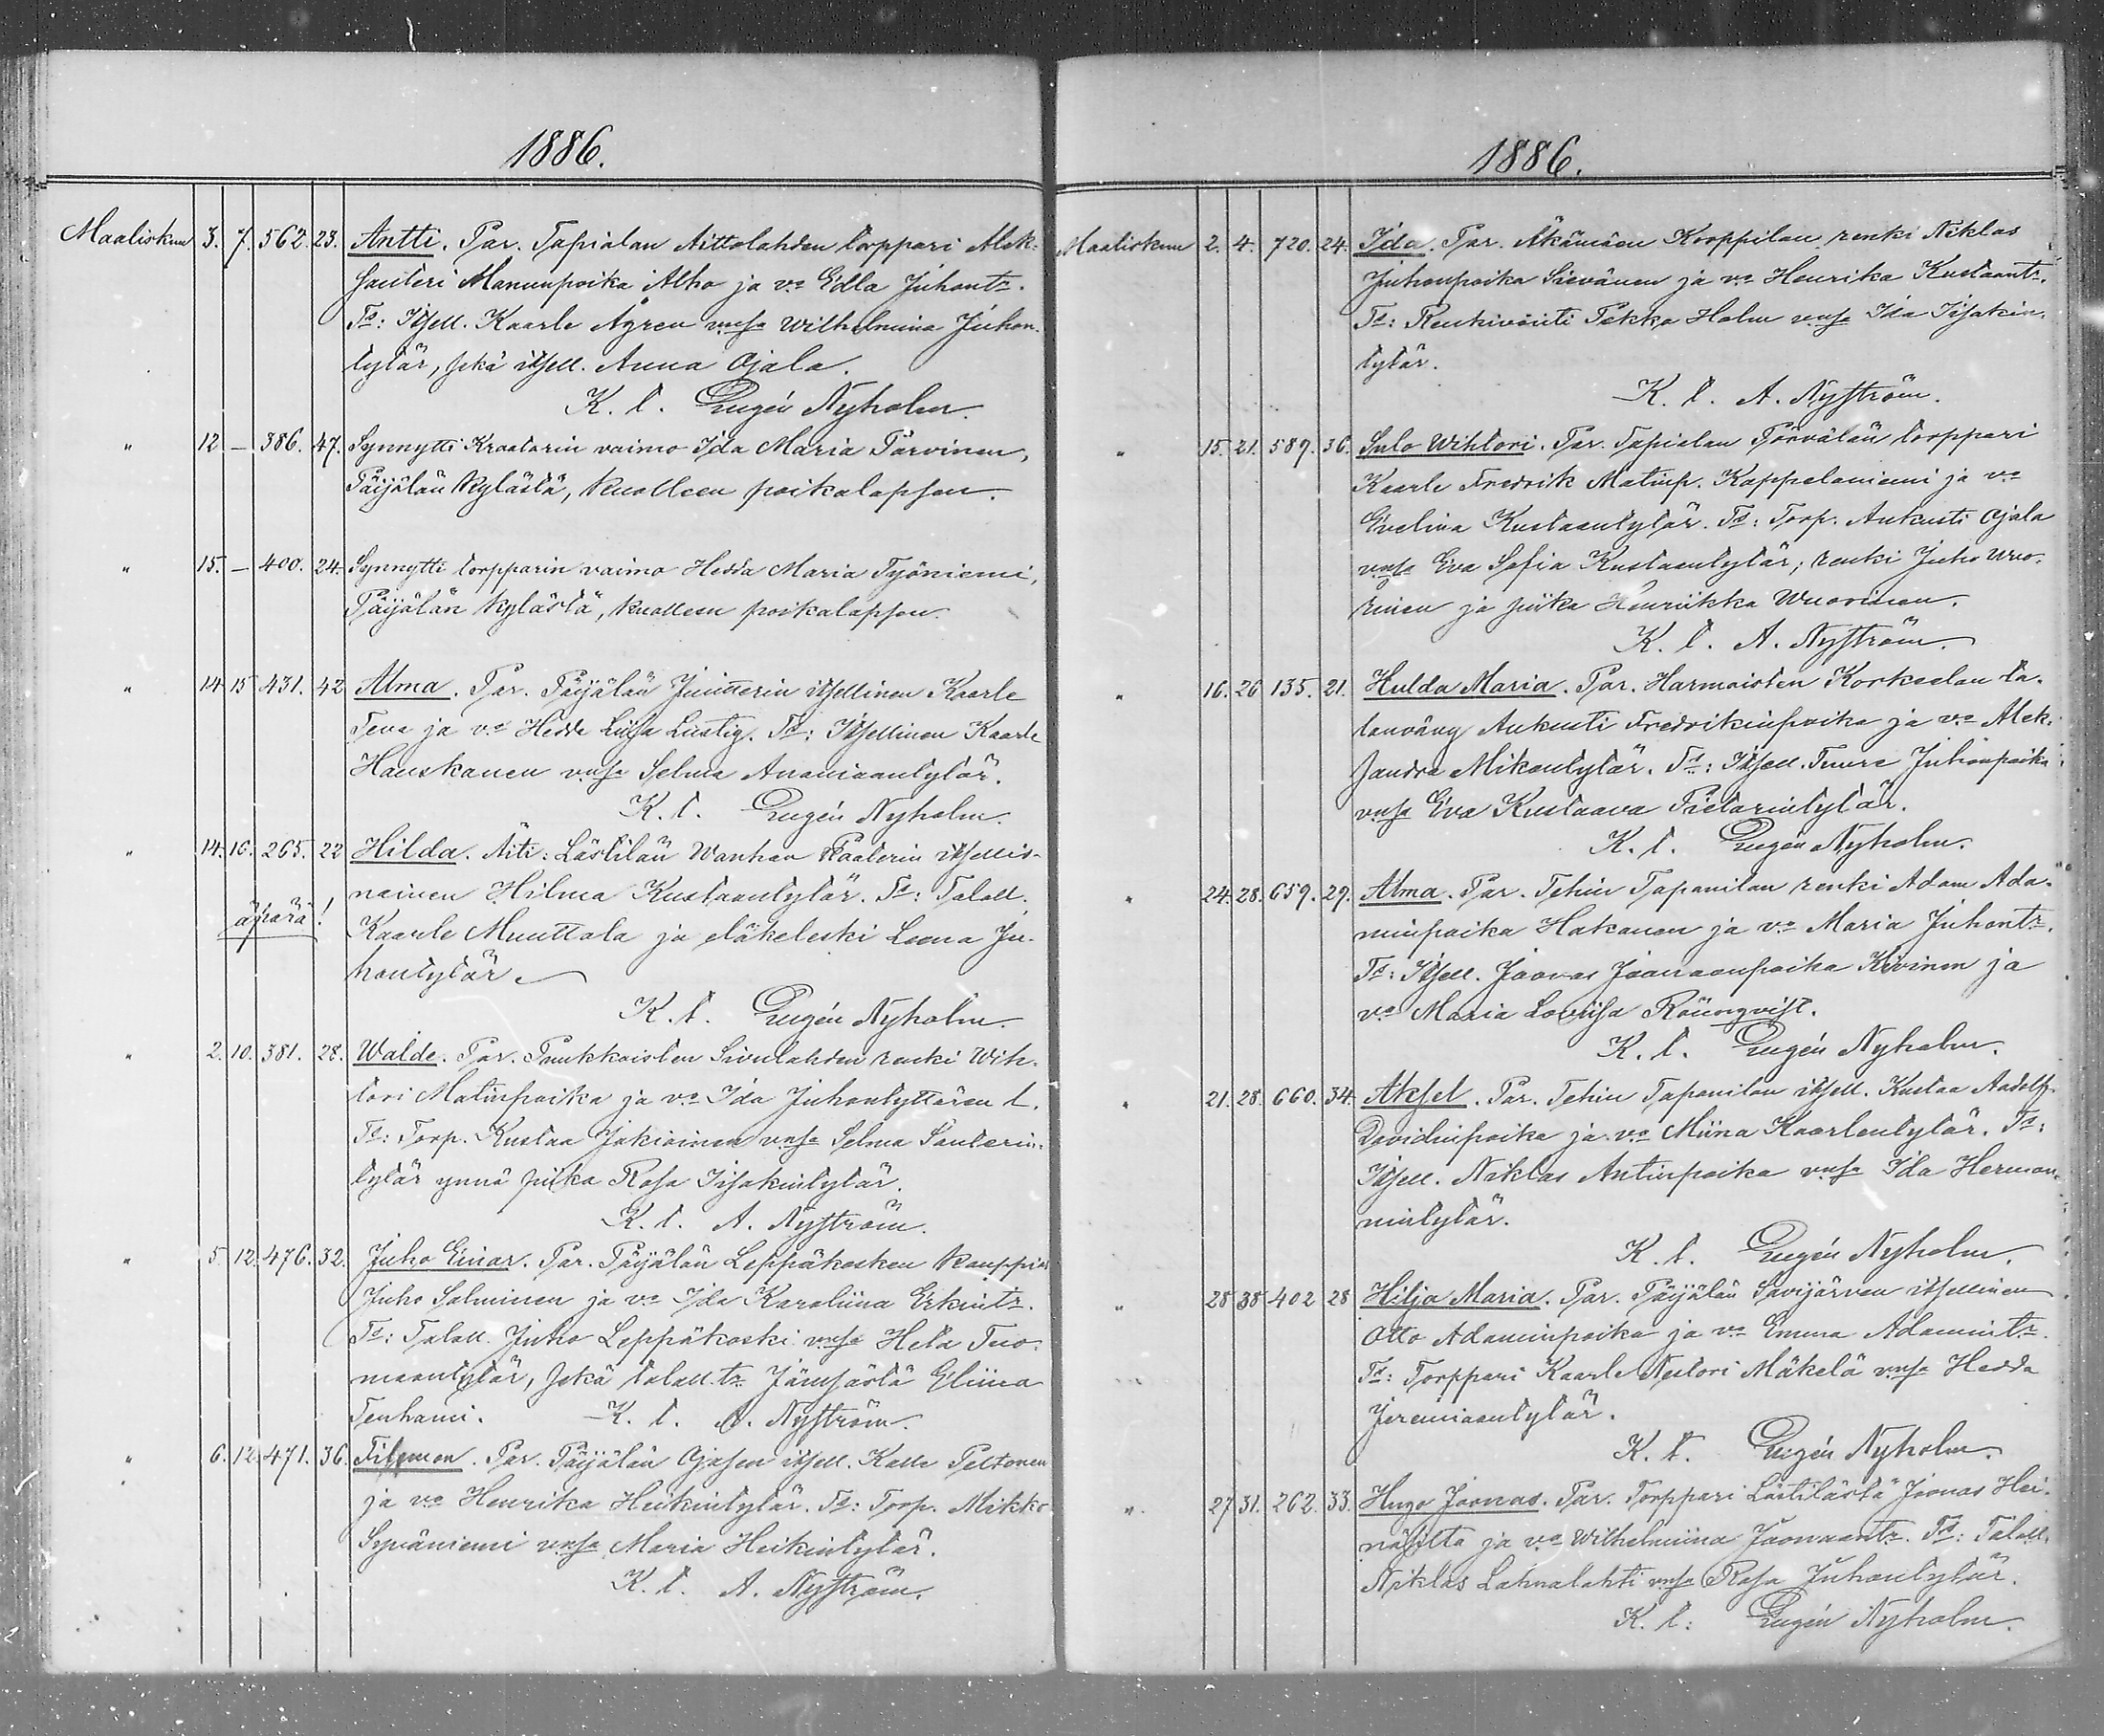 1886.
Maaliskuu 3. 7. 562. 23. Antti. Par. Tapialan Aittolahden torppari Alek-
santeri Manunpoika Alho ja vo Edla Juhontr.
Td: Itsell. Kaarle Ågren vnsa Wilhelmina Juhon-
tytär, sekä itsell. Anna Ojala.
K. t. Eugén Nyholm.
" 12 — 386. 47. Synnytti Kraatarin vaimo Ida Maria Tarvinen,
Päijälän kylästä, kuolleen poikalapsen.
" 15. — 400. 24. Synnytti torpparin vaimo Hedda Maria Työniemi,
Päijälän kylästä, kuolleen poikalapsen.
" 14 15 431. 42 Alma. Par. Päijälän Juntterin itsellinen Kaarle
Teva ja vo Hedda Liisa Lustig. Td: Itsellinen Kaarle
Hauskanen vnsa Selma Ananiaantytär.
K. t. Eugén Nyholm.
" 14. 16. 265. 22 Hilda. Äiti: Lästilän Wanhan Paaterin itsellis-
nainen Hilma Kustaantytär. Td: Talall.
äpärä! Kaarle Muuttala ja eläkeleski Leena Ju-
hontytär
K. t. Eugén Nyholm.
" 2. 10. 381. 28. Walde. Par. Puukkoisten Sivulahden renki Wih-
tori Matinpoika ja vo Ida Juhontyttären l.
Td: Torp. Kustaa Jokioinen vnsa Selma Santerin-
tytär ynnä piika Rosa Iisakintytär.
K. t. A. Nyström.
" 5. 12. 476. 32. Juho Einar. Par. Päijälän Leppäkosken kauppias
Juho Salminen ja vo Ida Karoliina Erkintr.
Td: Talall. Juho Leppäkoski vnsa Heta Tuo-
maantytär, sekä talall. tr. Jämsästä Eliina
Tenhami. K. t. A. Nyström.
" 6. 12. 471. 36. Filemon. Par. Päijälän Ojasen itsell. Kalle Peltonen
ja vo Henrika Heikintytär. Td: Torp. Mikko
Syväniemi vnsa Maria Heikintytär.
K. t. A. Nyström.
1886.
Maaliskuu 2. 4. 720. 24. Ida. Par. Äkämäen Korppilan renki Niklas
Juhonpoika Sievänen ja vo Henrika Kustaantr.
Td: Renkivouti Pekka Holm vnsa Ida Iisakin-
tytär.
K. t. A. Nyström.
" 15. 21. 589. 36. Sulo Wihtori. Par. Tapialan Törvälän torppari
Kaarle Fredrik Matinp. Kappelaniemi ja vo
Evelina Kustaantytär. Td: Torp. Aukusti Ojala
vnsa Eva Sofia Kustaantytär; renki Juho Wuo-
rinen ja piika Henriikka Wuorinen.
K. t. A. Nyström.
" 16. 26 135. 21. Hulda Maria. Par. Harmoisten Korkeelan ta-
lonvävy Aukusti Fredrikinpoika ja vo Alek-
sandra Mikontytär. Td: Itsell. Tuure Juhonpoika
vnsa Eva Kustaava Fietarintytär.
K. t. Eugén Nyholm.
" 24. 28. 659. 29. Alma. Par. Tehin Tapanilan renki Adam Ada-
minpoika Hakanen ja vo Maria Juhontr.
Td: Itsell. Joonas Joonaanpoika Kivinen ja
vo Maria Lovisa Rönnqvist.
K. t. Eugén Nyholm.
" 21. 28. 660. 34. Aksel. Par. Tehin Tapanilan itsell. Kustaa Aadolf
Davidinpoika ja vo Miina Kaarlentytär. Td:
Itsell. Niklas Antinpoika vnsa Ida Herman-
nintytär.
K. t. Eugén Nyholm.
" 28 38 402 28 Hilja Maria. Par. Päijälän Savijärven itsellinen
Otto Adaminpoika ja vo Emma Adamintr.
Td: Torppari Kaarle Nestori Mäkelä vnsa Hedda
Jeremiaantytär.
K. t. Eugén Nyholm.
" 27 31. 262. 33. Hugo Joonas. Par. Torppari Lästilästä Joonas Hei-
näsilta ja vo Wilhelmiina Joonaantr. Td: Talall.
Niklas Lahnalahti vnsa Rosa Juhontytär.
K. t: Eugén Nyholm.